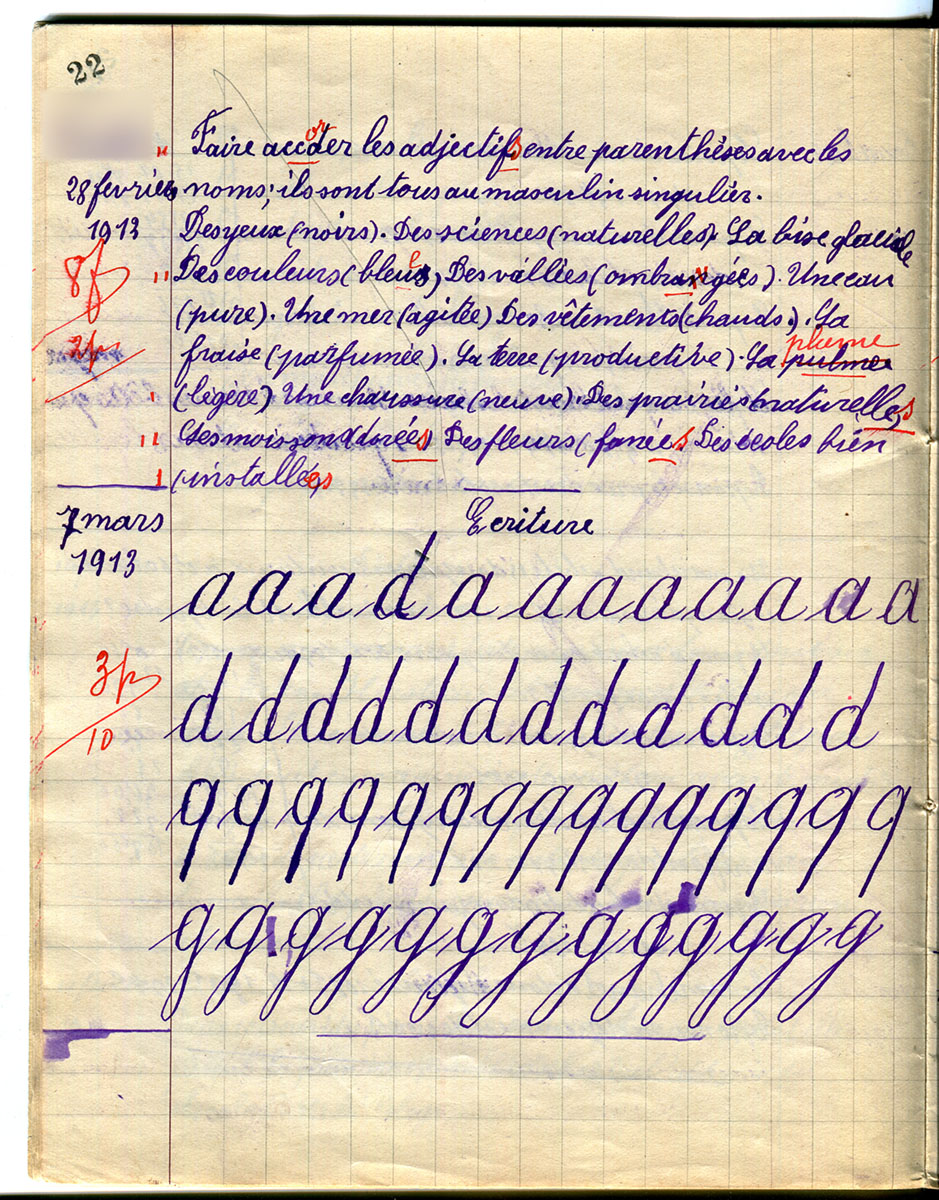 22
Faire accoter les adjectifs entre parenthèses avec les
or s
28 fevrier noms; ils sont tous au masculin singulier.
1913 Des yeux (noirs). Des sciences (naturelles). La bise glaciale
8f Des couleurs (bleus), Des vallées (ombrangées). Une eau
(pure). Une mer (agitée) Des vêtements (chauds). La
plume
fraise (parfumée). La terre (productive). La pulmee
(légère) Une chaussure (neuve). Des prairies (naturelles
Les moissons (dorées) Des fleurs (fanées Des écoles bien
(installées
7 mars Ecriture
1913
a a a d a a a a a a a a
3p
10
d d d d d d d d d d d d
q q q q q q q q q q q q q q q
g g g g g g g g g g g g g